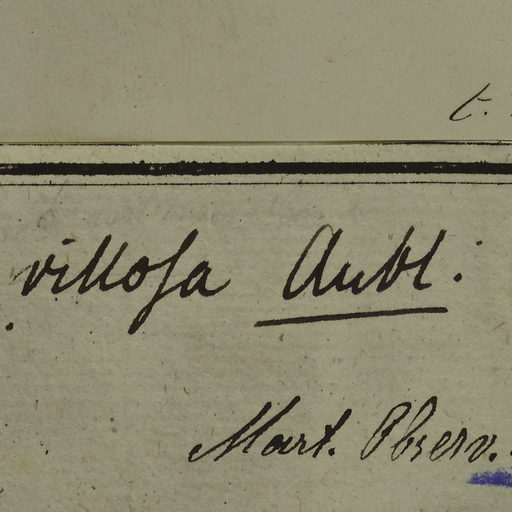 t.
villosa Aubl.
Mart. Observ.